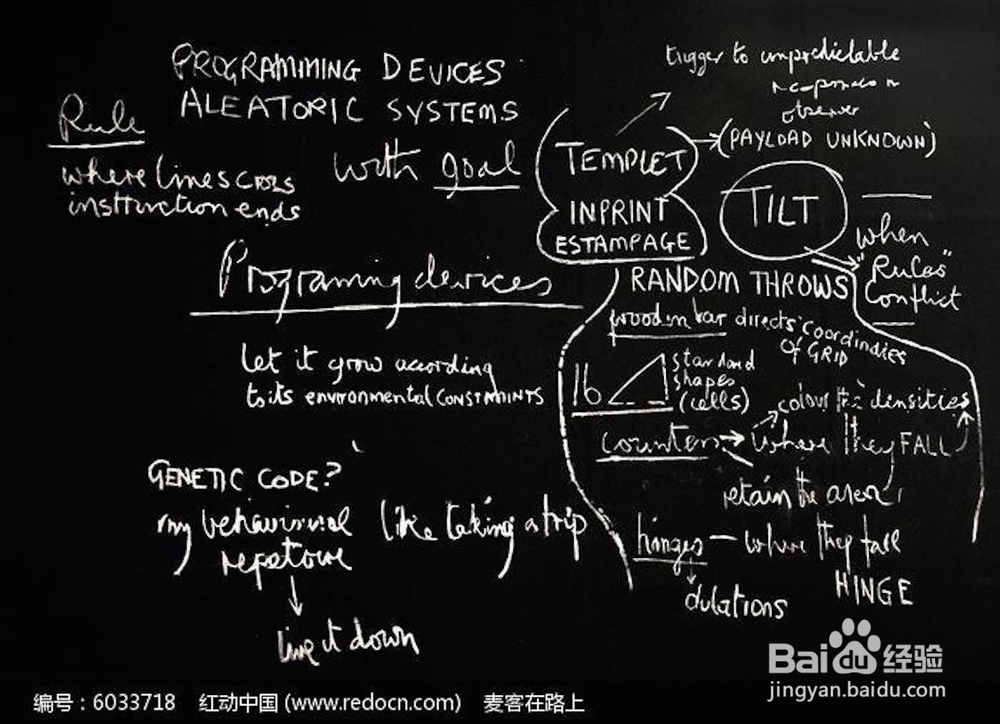 PROGRAMMING DEVICES
ALEATORIC SYSTEMS
with goal
Rule
where lines cross
insttruction ends
Programing devices
let it grow according
to its environmental CONSTRAINTS
GENETIC CODE?
my behaviural
repetoire
like taking a trip
live it down
trigger to unpredictable
response in
observer
TEMPLET
(PAYLOAD UNKNOWN)
INPRINT
ESTAMPAGE
TILT
when
"Rules"
Conflict
RANDOM THROWS
wooden bar directs coordinates
OF GRID
16
standard
shapes
(cells)
colour densities
counters
where they FALL
retain the area
hinges – where they fall
HINGE
dulations
Baidu 经验
jingyan.baidu.com
编号：6033718 红动中国 (www.redocn.com) 麦客在路上